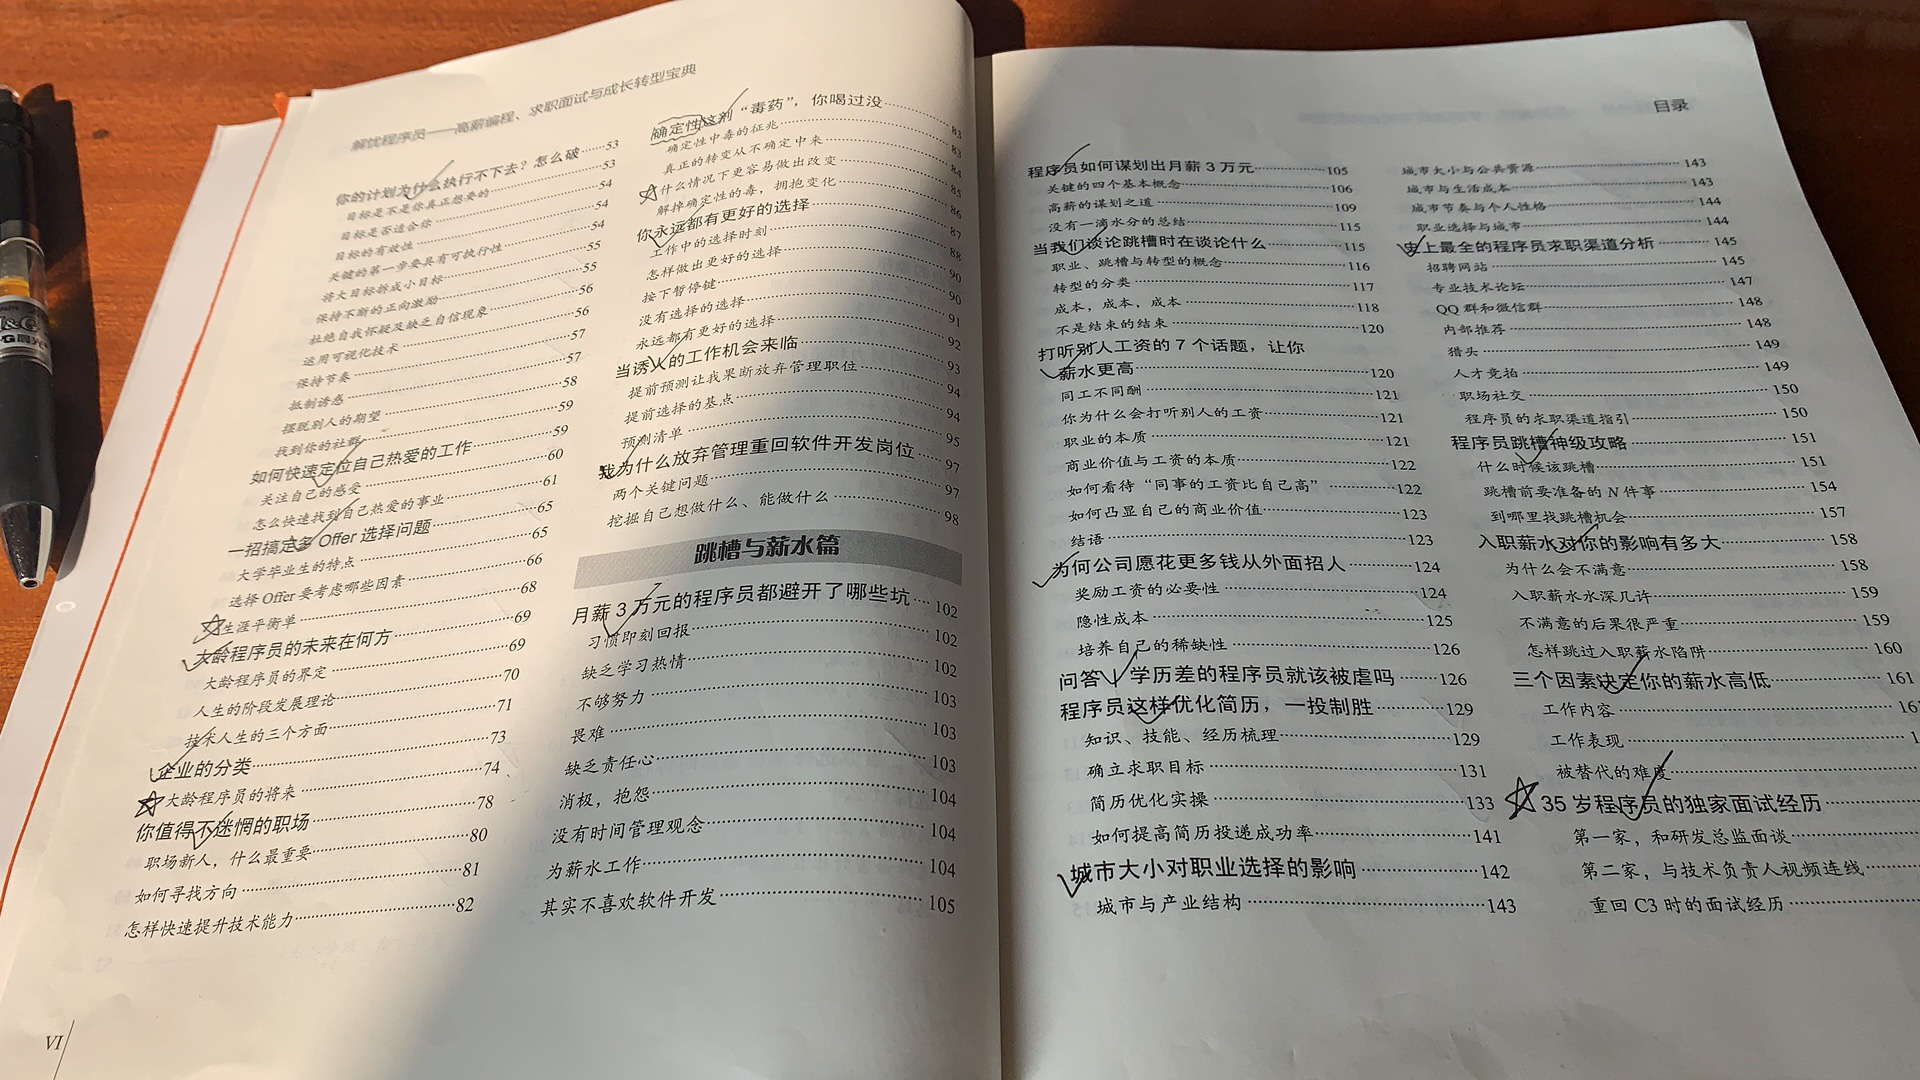 解忧程序员——高薪编程、求职面试与成长转型宝典
你的计划为什么执行不下去？怎么破······53
目标是不是你真正想要的······53
目标是否适合你······54
目标的有效性······54
关键的第一步要具有可执行性······54
将大目标拆成小目标······55
保持不断的正向激励······55
杜绝自我怀疑及缺乏自信现象······56
运用可视化技术······56
保持节奏······57
抵制诱惑······57
摆脱别人的期望······58
找到你的社群······59
如何快速定位自己热爱的工作······59
关注自己的感受······60
怎么快速找到自己热爱的事业······61
一招搞定多 Offer 选择问题······65
大学毕业生的特点······65
选择 Offer 要考虑哪些因素······66
生涯平衡单······68
大龄程序员的未来在何方······69
大龄程序员的界定······69
人生的阶段发展理论······70
技术人生的三个方面······71
企业的分类······73
大龄程序员的将来······74
你值得不迷惘的职场······78
职场新人，什么最重要······80
如何寻找方向······81
怎样快速提升技术能力······82
确定性这剂“毒药”，你喝过没······83
确定性中毒的征兆······83
真正的转变从不确定中来······84
什么情况下更容易做出改变······85
解掉确定性的毒，拥抱变化······86
你永远都有更好的选择······87
工作中的选择时刻······88
怎样做出更好的选择······90
按下暂停键······90
没有选择的选择······91
永远都有更好的选择······92
当诱人的工作机会来临······93
提前预测让我果断放弃管理职位······94
提前选择的基点······94
预测清单······95
我为什么放弃管理重回软件开发岗位······97
两个关键问题······97
挖掘自己想做什么、能做什么······98
跳槽与薪水篇
月薪 3 万元的程序员都避开了哪些坑······102
习惯即刻回报······102
缺乏学习热情······102
不够努力······103
畏难······103
缺乏责任心······103
消极，抱怨······104
没有时间管理观念······104
为薪水工作······104
其实不喜欢软件开发······105
VI
目录
程序员如何谋划出月薪 3 万元······105
关键的四个基本概念······106
高薪的谋划之道······109
没有一滴水分的总结······115
当我们谈论跳槽时在谈论什么······115
职业、跳槽与转型的概念······116
转型的分类······117
成本，成本，成本······118
不是结束的结束······120
打听别人工资的 7 个话题，让你
薪水更高······120
同工不同酬······121
你为什么会打听别人的工资······121
职业的本质······121
商业价值与工资的本质······122
如何看待“同事的工资比自己高”······122
如何凸显自己的商业价值······123
结语······123
为何公司愿花更多钱从外面招人······124
奖励工资的必要性······124
隐性成本······125
培养自己的稀缺性······126
问答：学历差的程序员就该被虐吗······126
程序员这样优化简历，一投制胜······129
知识、技能、经历梳理······129
确立求职目标······131
简历优化实操······133
如何提高简历投递成功率······141
城市大小对职业选择的影响······142
城市与产业结构······143
城市大小与公共资源······143
城市与生活成本······143
城市节奏与个人性格······144
职业选择与城市······144
史上最全的程序员求职渠道分析······145
招聘网站······145
专业技术论坛······147
QQ 群和微信群······148
内部推荐······148
猎头······149
人才竞拍······149
职场社交······150
程序员的求职渠道指引······150
程序员跳槽神级攻略······151
什么时候该跳槽······151
跳槽前要准备的 N 件事······154
到哪里找跳槽机会······157
入职薪水对你的影响有多大······158
为什么会不满意······158
入职薪水水深几许······159
不满意的后果很严重······159
怎样跳过入职薪水陷阱······160
三个因素决定你的薪水高低······161
工作内容······161
工作表现······1
被替代的难度······
35 岁程序员的独家面试经历······
第一家，和研发总监面谈······
第二家，与技术负责人视频连线······
重回 C3 时的面试经历······